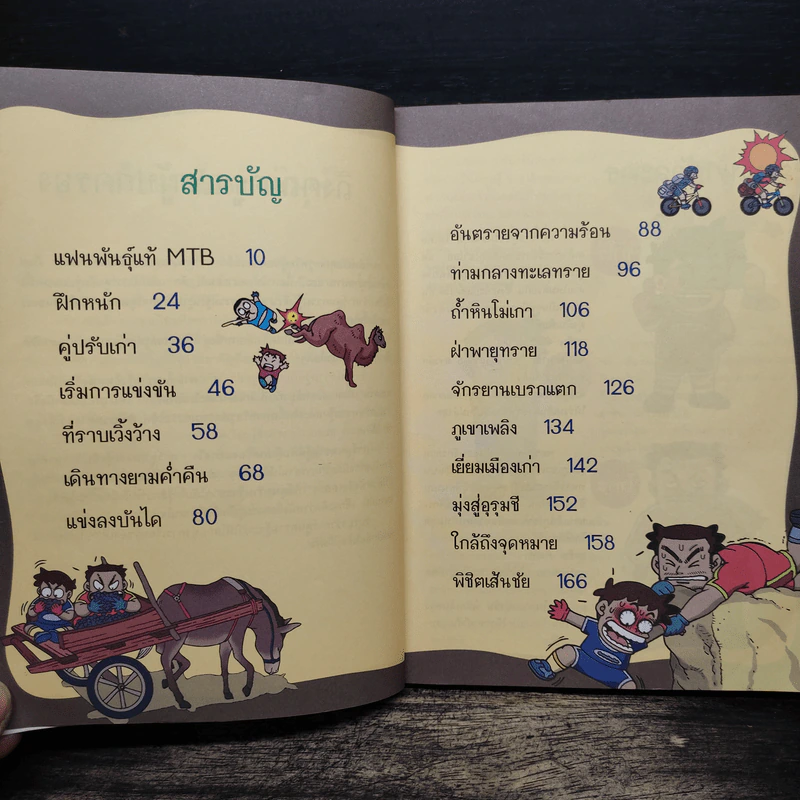 สารบัญ
แฟนพันธุ์แท้ MTB 10
ฝึกหนัก 24
คู่ปรับเก่า 36
เริ่มการแข่งขัน 46
ที่ราบเวิ้งว้าง 58
เดินทางยามค่ำคืน 68
แข่งลงบันได 80
อันตรายจากความร้อน 88
ท่ามกลางทะเลทราย 96
ถ้ำหินโม่เกา 106
ฝ่าพายุทราย 118
จักรยานเบรกแตก 126
ภูเขาเพลิง 134
เยี่ยมเมืองเก่า 142
มุ่งสู่อุรุมชี 152
ใกล้ถึงจุดหมาย 158
พิชิตเส้นชัย 166